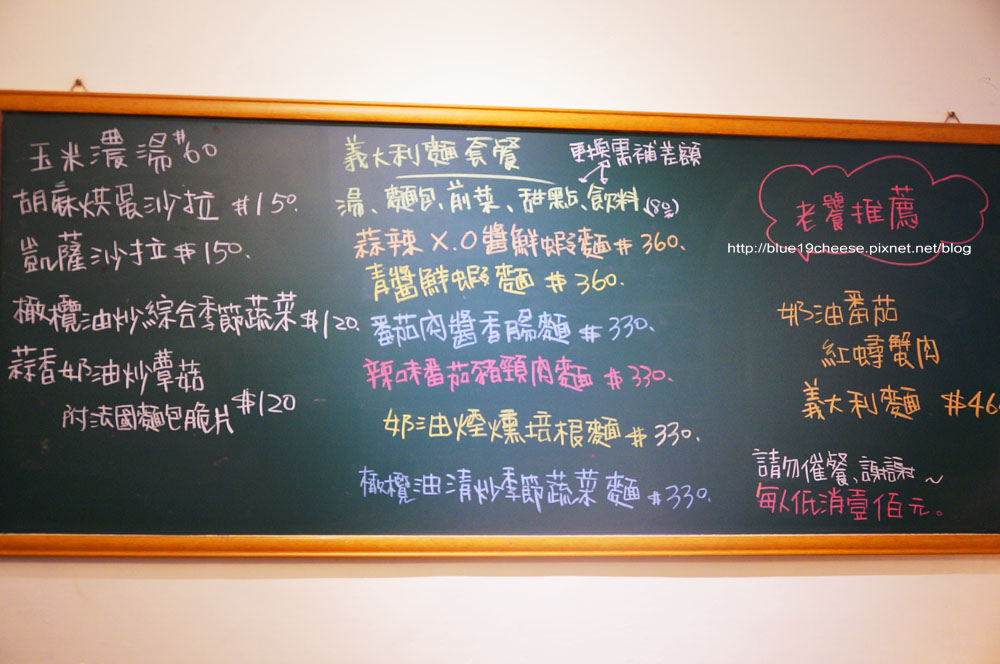 玉米濃湯 $60
胡麻烘蛋沙拉 $150.
凱薩沙拉 $150.
橄欖油炒綜合季節蔬菜 $120.
蒜香奶油炒蕈菇
附法國麵包脆片 $120
義大利麵套餐
更換需補差額
湯、麵包、前菜、甜點、飲料 (80)
蒜辣X.O醬鮮蝦麵 $360.
青醬鮮蝦麵 $360.
番茄肉醬香腸麵 $330.
辣味番茄豬頸肉麵 $330.
奶油煙燻培根麵 $330.
橄欖油清炒季節蔬菜麵 $330.
老饕推薦
http://blue19cheese.pixnet.net/blog
奶油番茄
紅蟳蟹肉
義大利麵 $46
請勿催餐、謝謝~
每人低消壹佰元。